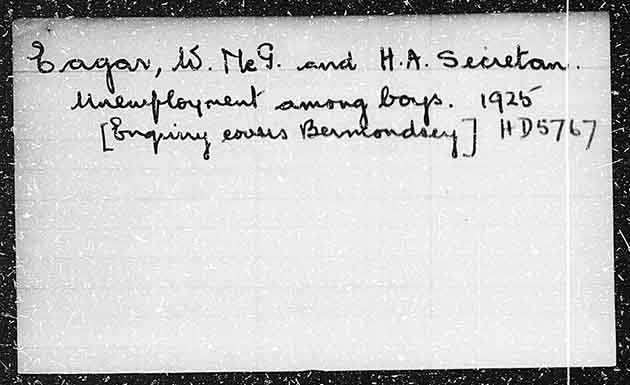 Eagar, W. McG. and H.A. Secretan.
Unemployment among boys. 1925
[Enquiry covers Bermondsey] HD5767